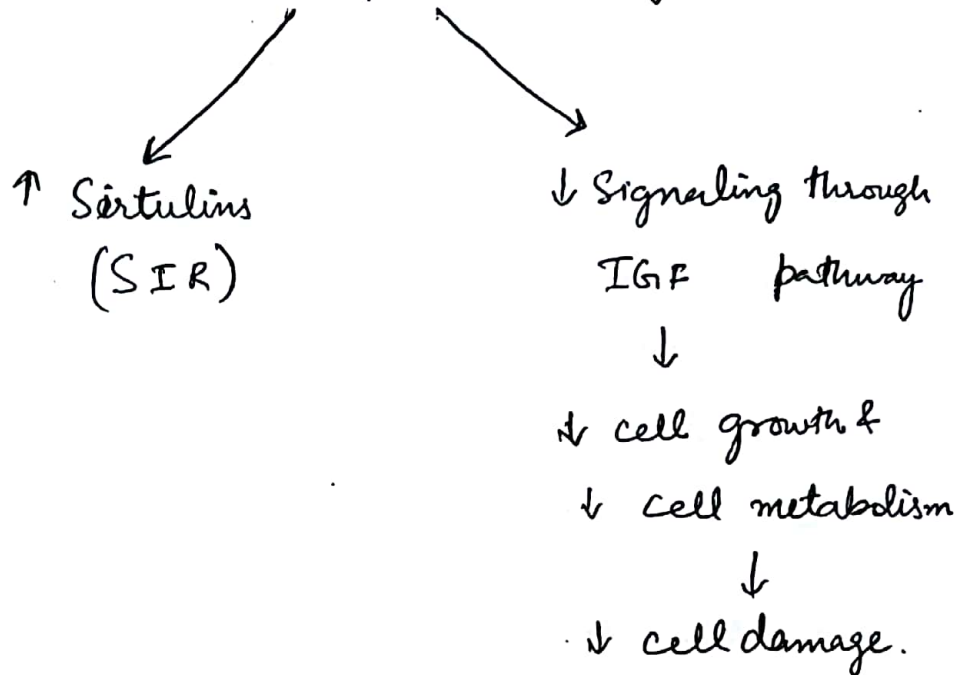 ↑ Sirtulins
(SIR)
↓ Signaling through
IGF pathway
↓
↓ cell growth &
↓ cell metabolism
↓
↓ cell damage.